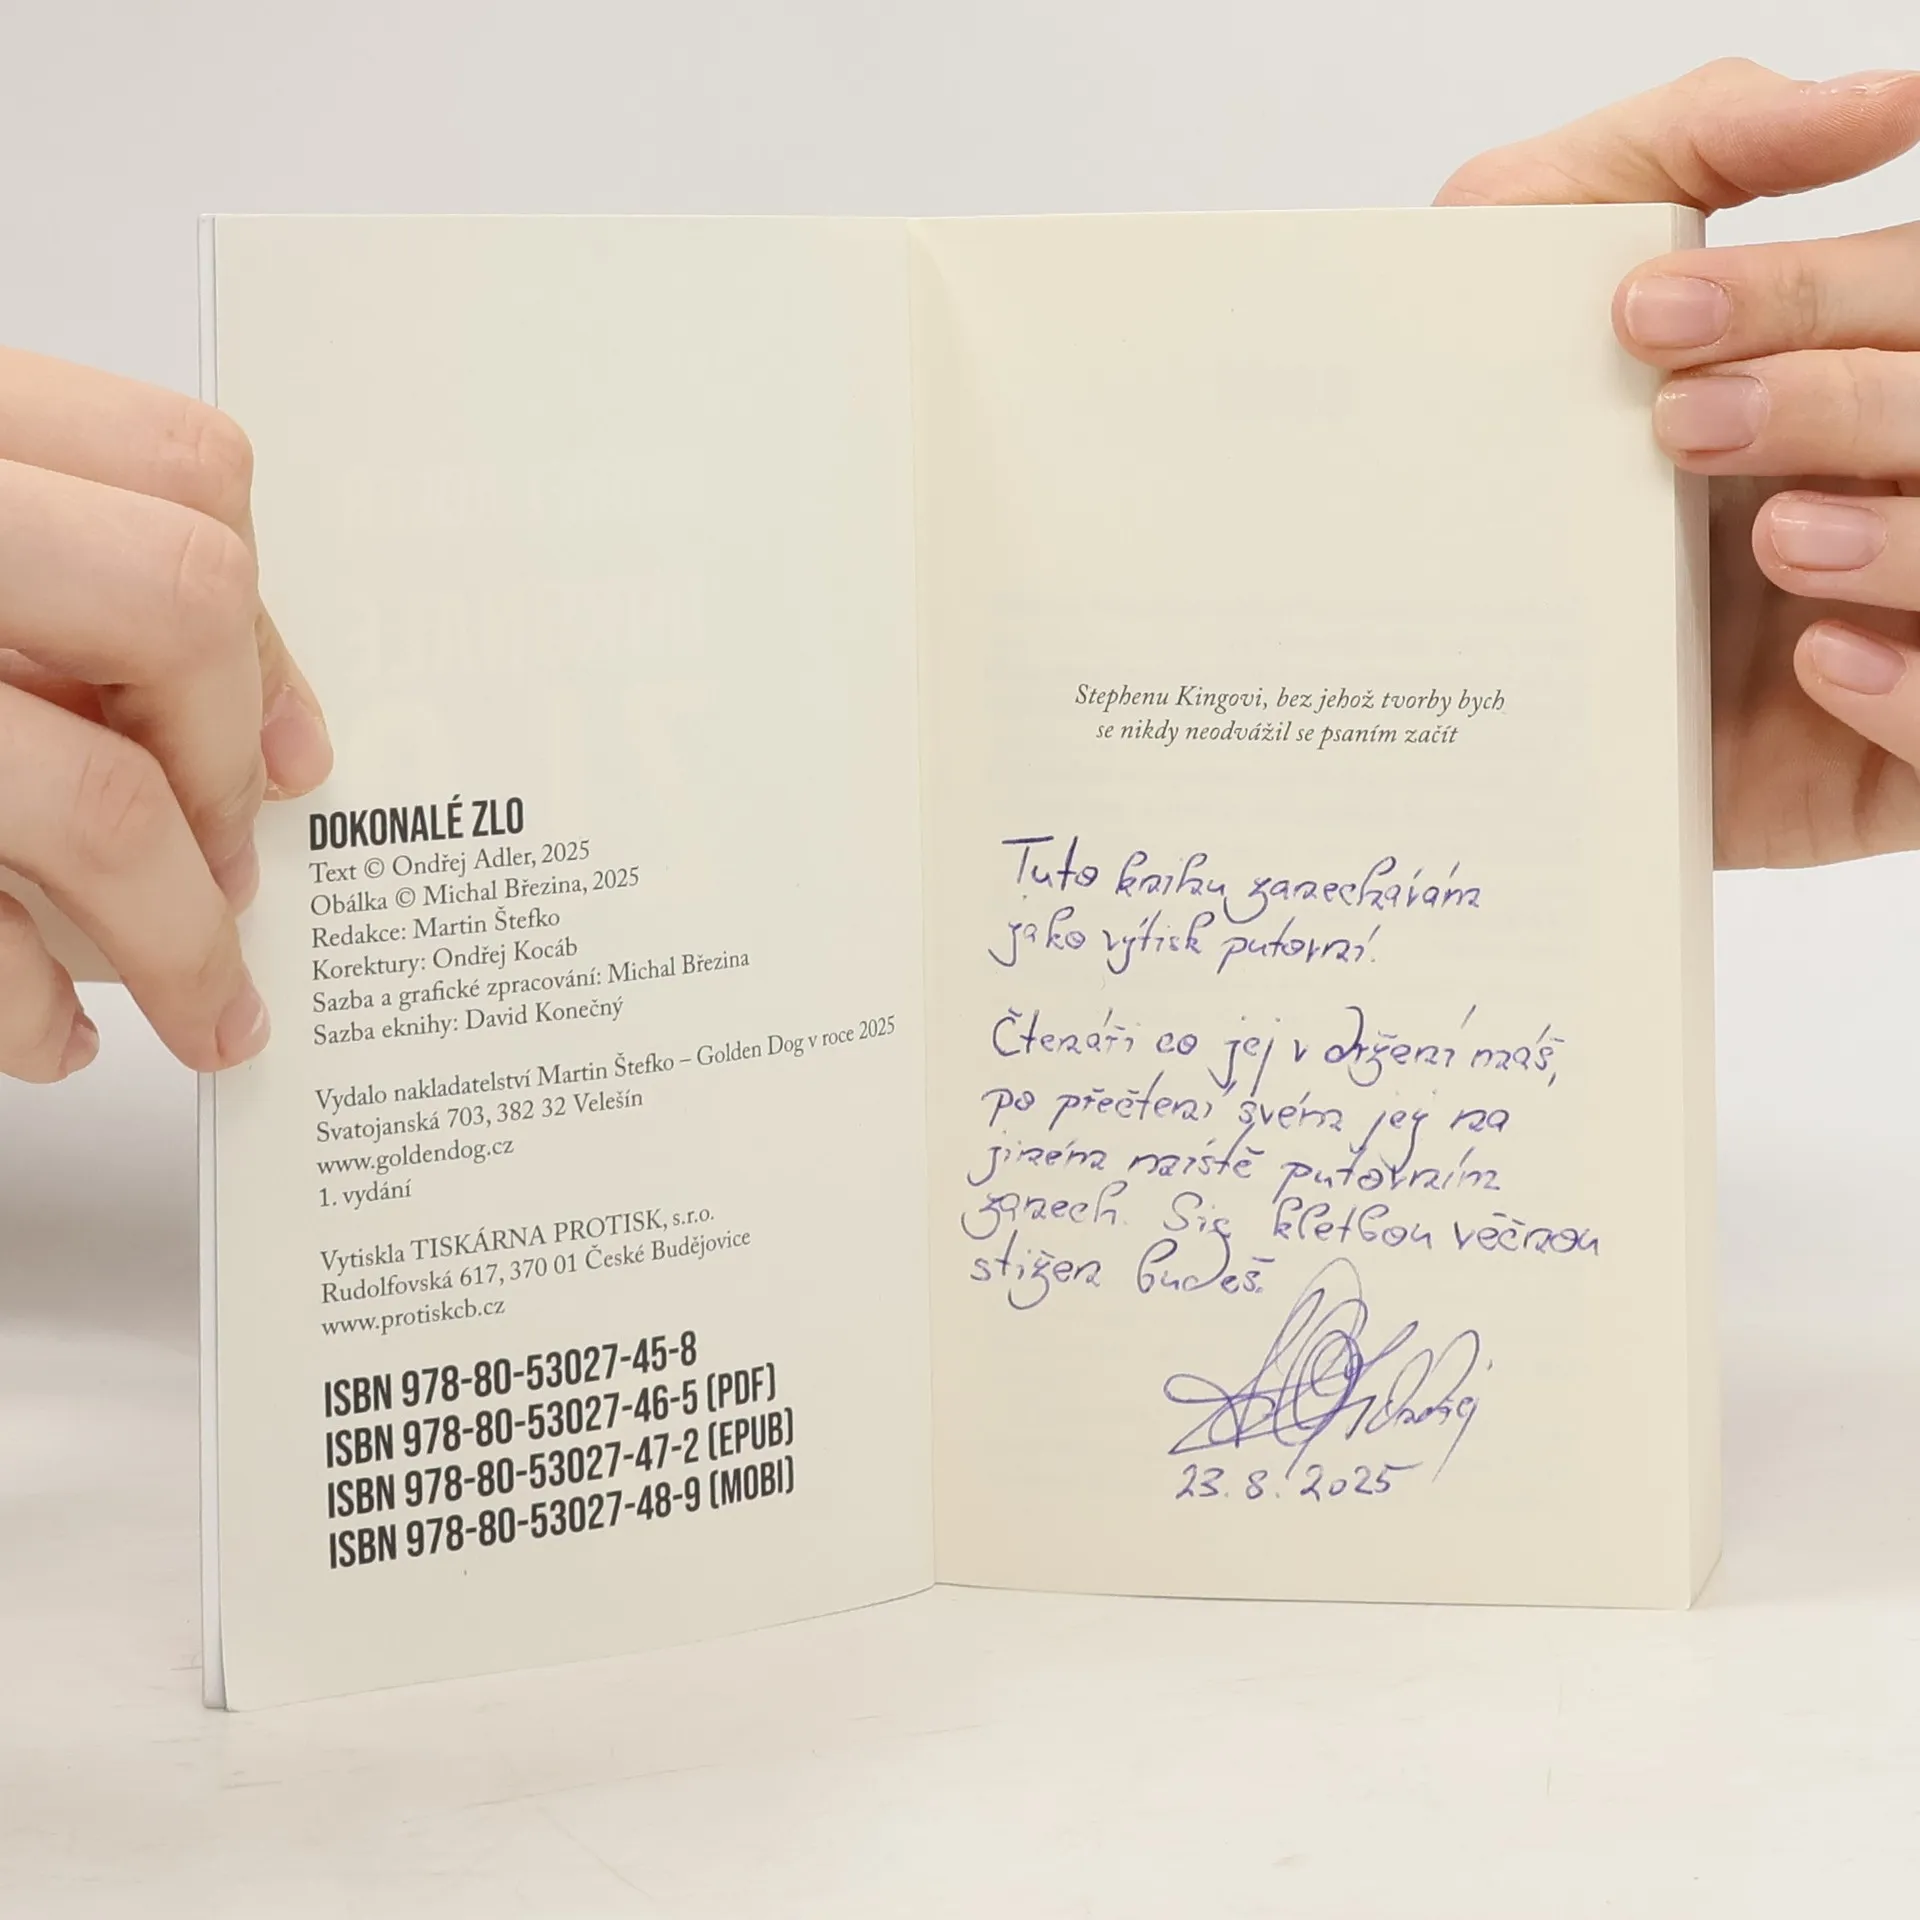 DOKONALÉ ZLO
Text © Ondřej Adler, 2025
Obálka © Michal Březina, 2025
Redakce: Martin Štefko
Korektury: Ondřej Kocáb
Sazba a grafické zpracování: Michal Březina
Sazba eknihy: David Konečný
Vydalo nakladatelství Martin Štefko – Golden Dog v roce 2025
Svatojanská 703, 382 32 Velešín
www.goldendog.cz
1. vydání
Vytiskla TISKÁRNA PROTISK, s.r.o.
Rudolfovská 617, 370 01 České Budějovice
www.protiskcb.cz
ISBN 978-80-53027-45-8
ISBN 978-80-53027-46-5 (PDF)
ISBN 978-80-53027-47-2 (EPUB)
ISBN 978-80-53027-48-9 (MOBI)
Stephenu Kingovi, bez jehož tvorby bych
se nikdy neodvážil se psaním začít
Tuto knihu zanechávám
jako výtisk putovní.
Čtenáři co jej v držení máš,
po přečtení svém jej na
jiném místě putovním
zanech. Sic kletbou věčnou
stižen budeš.
23. 8. 2025